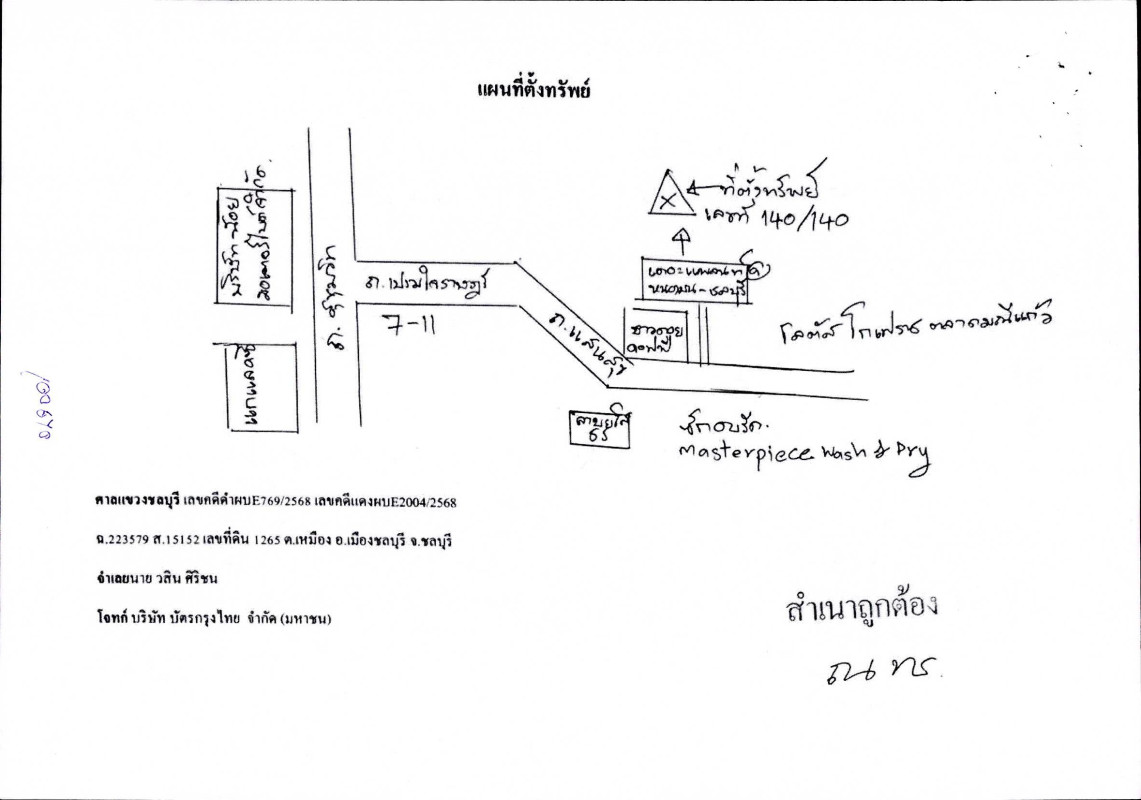 แผนที่ตั้งทรัพย์
ที่ตั้งทรัพย์
เลขที่ 140/140
บริษัท
จำกัด
ถ.สุขุมวิท
ถ.เปรมใจราษฎร์
7-11
ถ.แสนสุข
เดอะแพลนท์
ชลบุรี
ชาวดอย
คอฟฟี่
โลตัส โกเฟรช ตลาดมณีแก้ว
65
Masterpiece Wash & Dry
ศาลแขวงชลบุรี เลขคดีดำผบE769/2568 เลขคดีแดงผบE2004/2568
ฉ.223579 ส.15152 เลขที่ดิน 1265 ต.เหมือง อ.เมืองชลบุรี จ.ชลบุรี
จำเลยนาย วสิน ศิริชน
โจทก์ บริษัท บัตรกรุงไทย จำกัด (มหาชน)
สำเนาถูกต้อง